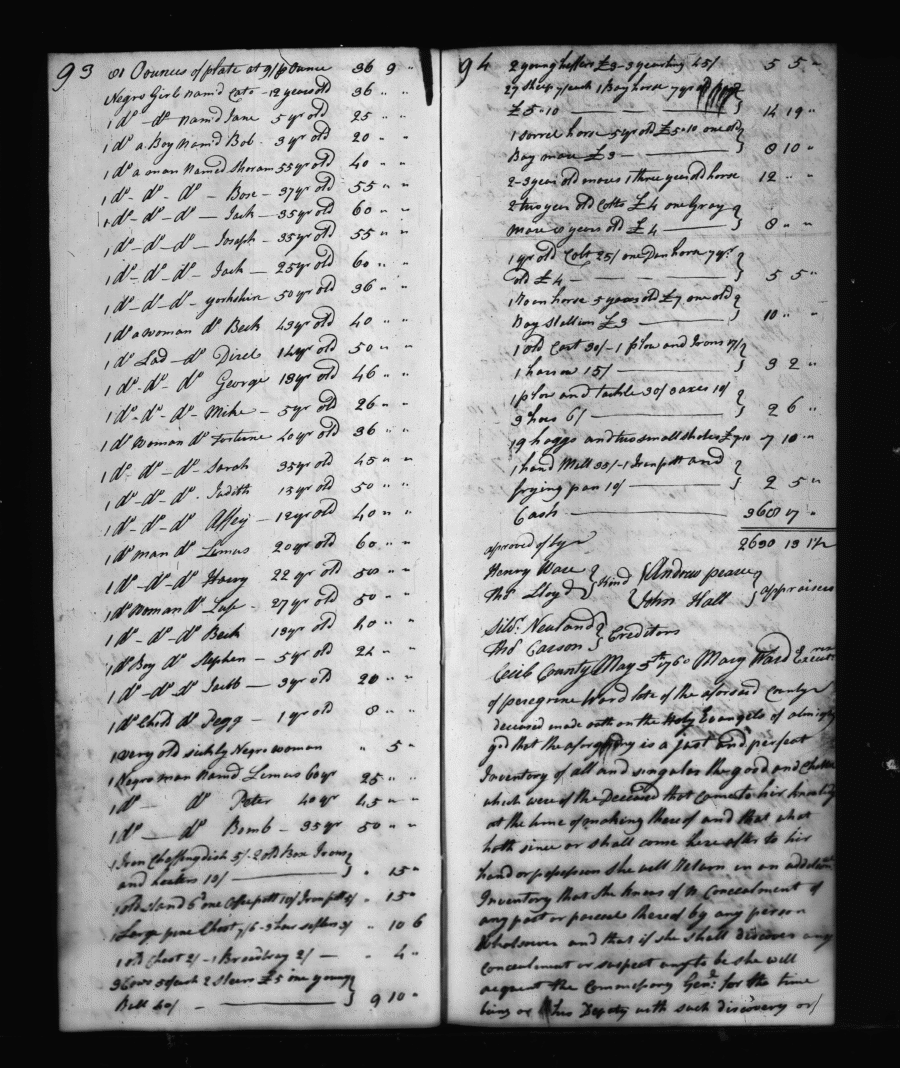 93
81 Ounces of plate at 9/ p Ounce 36 9 "
Negro Girl Nam'd Cate - 12 years old 36 " "
1 do - do Nam'd Jane 5 yr old 25 " "
1 do a Boy Nam'd Bob - 3 yr old 20 " "
1 do a man Named 55 yr old 40 " "
1 do - do - do - Bose - 37 yr old 55 " "
1 do - do - do - Jack - 35 yr old 60 " "
1 do - do - do - Joseph - 35 yr old 55 " "
1 do - do - do - Jack - 25 yr old 60 " "
1 do - do - do - Yorkshire 50 yr old 36 " "
1 do a woman do Beck 43 yr old 40 " "
1 do Lad - do 14 yr old 50 " "
1 do - do - do George 18 yr old 46 " "
1 do - do - do - Mike - 5 yr old 26 " "
1 do Woman do Fortune 40 yr old 36 " "
1 do - do - do - Sarah 35 yr old 45 " "
1 do - do - do - Judith 13 yr old 50 " "
1 do - do - do Affey - 12 yr old 40 " "
1 do man do Lemus 20 yr old 60 " "
1 do - do - do Harry 22 yr old 50 " "
1 do Woman do 27 yr old 50 " "
1 do - do - do Beck 19 yr old 40 " "
1 do Boy do Stephen - 5 yr old 24 " "
1 do - do do - 3 yr old 20 " "
1 do Child do Pegg - 1 yr old 8 " "
1 very old sickly Negro woman " 5 "
1 Negro man Nam'd Lemus 60 yr 25 " "
1 do - do Peter 40 yr 45 " "
1 do - do Bomb - 35 yr 50 " "
1 Iron Chaffing dish 5/- 2 old Box Irons
and heaters 10/ " 15 "
1 old Stand 6d one Coffepott 10/ Iron pott " 15 "
1 Large pine Chest 7/6 - 3 " 10 6
1 old Chest 2/ - 1 Bread tray 2/ - " 4 "
3 Cows 2 Steers £5 one young
Bull 40/ - 9 10 "
94
2 young heffers £3 - 3 yearling 45/ 5 5 "
27 Sheep 7/ each 1 Bay horse 7 yr old
£5 " 10 14 19 "
1 sorrel horse 5 yr old £5 " 10 one old
Bay mare £3 - 8 10 "
2 - 3 year old mares 1 three year old horse 12 " "
2 two year old Colts £4 one Gray
mare 8 years old £4 8 " "
1 yr old Colt 25/ one Dun horse 7 yr
old £4 - 5 5 "
1 Roan horse 5 years old £7 one old
Bay Stallion £3 10 " "
1 old Cart 30/ - 1 plow and Irons 17/
1 harrow 15/ - 3 2 "
1 plow and tackle 30/ 3 axes 10/
3 hoes 6/ 2 6 "
19 hoggs and two small £7 10 7 10 "
1 hand Mill 33/ - 1 Iron pott and
frying pan 10/ 2 5 "
Cash 368 17 "
2690 13 1 1/2
approved of by
Henry Ware
Thos Lloyd } kind { Andrew peace
John Hall } appraisers
Silvr Newland
Thos Carson } Creditors
Cecil County May 5th 1760 Mary Ward Executrix
of peregrine Ward late of the aforsaid County
deceased made oath on the Holy Evangels of almighty
god that the aforgoing is a Just and perfect
Inventory of all and singular the good and Chattels
which were of the Deceased that Came to her knowledge
at the time of making thereof and that what
hath since or shall come here after to her
hand or possession she will Return in an additional
Inventory that she knows of no Concealment of
any part or parcel thereof by any person
Whatsoever and that if she Shall discover any
concealment or suspect any to be she will
acquent the Commissary Genl for the time
being or his Deputy with such discovery or/